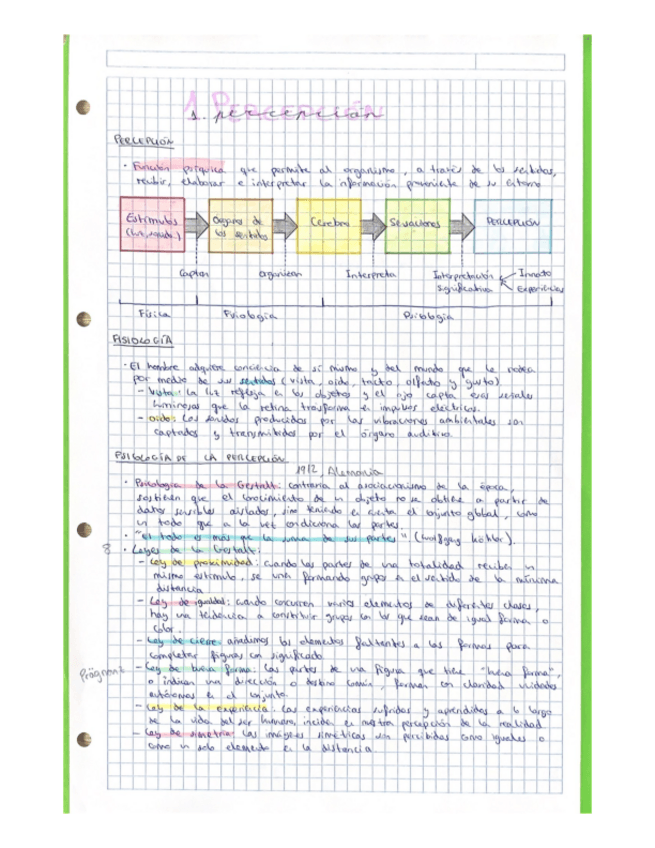 1. PERCEPCIÓN
1. percepción
PERCEPCIÓN
· Función psíquica que permite al organismo, a través de los sentidos,
recibir, elaborar e interpretar la información proveniente de su entorno
Estímulos (luz, sonido..)
Órganos de los sentidos
Cerebro
Sensaciones
PERCEPCIÓN
Captan
Organizan
Interpreta
Interpretación significativa
Innato
Experiencias
Física
Fisiología
Psicología
FISIOLOGÍA
· El hombre adquiere conciencia de sí mismo y del mundo que le rodea
por medio de sus sentidos (vista, oido, tacto, olfato y gusto).
- Vista: La luz refleja en los objetos y el ojo capta esas señales
luminosas que la retina transforma en impulsos eléctricos.
- Oido: Los sonidos producidos por las vibraciones ambientales son
captados y transmitidos por el órgano auditivo.
PSICOLOGÍA DE LA PERCEPCIÓN
1912, Alemania
· Psicología de la Gestalt: contraria al asociacionismo de la época,
sostienen que el conocimiento de un objeto no se obtiene a partir de
datos sensibles aislados, sino teniendo en cuenta el conjunto global, como
un todo que a la vez condiciona las partes.
· "el todo es más que la suma de sus partes" (Wolfgang Köhler).
8 · Leyes de la Gestalt:
- Ley de proximidad: cuando las partes de una totalidad reciben un
mismo estímulo, se unen formando grupos en el sentido de la mínima
distancia
- Ley de igualdad: cuando concurren varios elementos de diferentes clases,
hay una tendencia a constituir grupos con los que sean de igual forma o
color.
- Ley de cierre: añadimos los elementos faltantes a las formas para
completar figuras con significado.
Prägnanz - Ley de buena forma: Las partes de una figura que tiene "buena forma",
o indican una dirección o destino común, forman con claridad unidades
autónomas en el conjunto.
- Ley de la experiencia: Las experiencias sufridas y aprendidas a lo largo
de la vida del ser humano, inciden en nuestra percepción de la realidad
- Ley de simetría: Las imágenes simétricas son percibidas como iguales o
como un solo elemento en la distancia